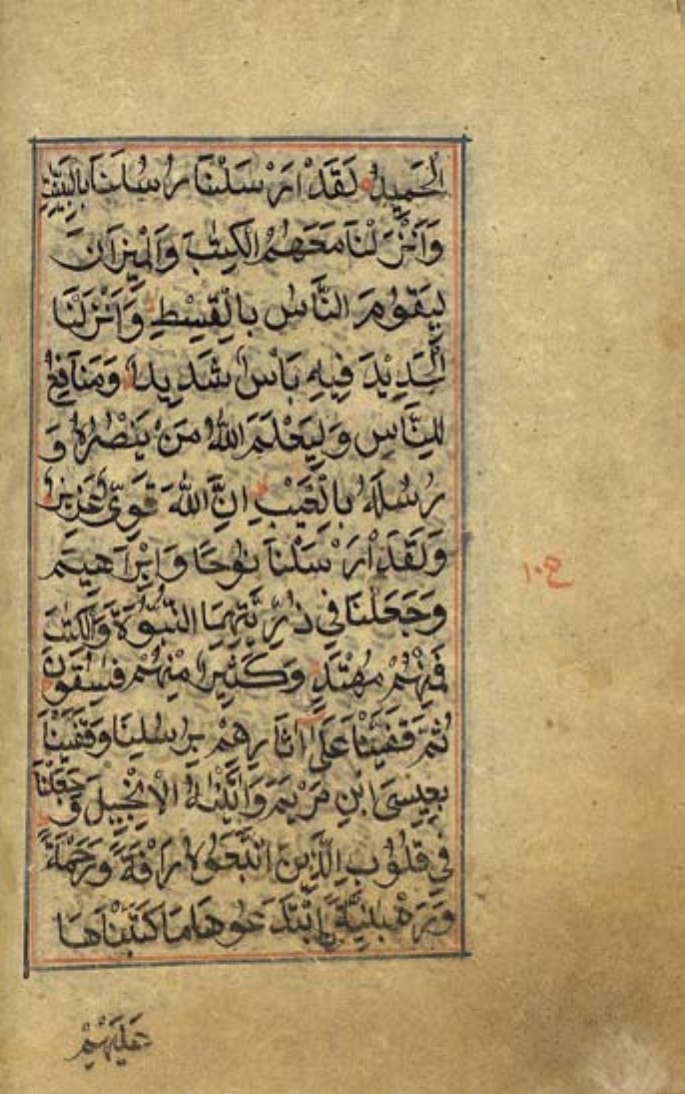 الْحَمِيدُ لَقَدْ اَرْسَلْنَا رُسُلَنَا بِالْبَيِّنٰتِ
وَاَنْزَلْنَا مَعَهُمُ الْكِتٰبَ وَالْمِيْزَانَ
لِيَقُوْمَ النَّاسُ بِالْقِسْطِ وَاَنْزَلْنَا
الْحَدِيْدَ فِيْهِ بَاْسٌ شَدِيْدٌ وَمَنَافِعُ
لِلنَّاسِ وَلِيَعْلَمَ اللّٰهُ مَنْ يَنْصُرُهٗ وَ
رُسُلَهٗ بِالْغَيْبِ اِنَّ اللّٰهَ قَوِيٌّ عَزِيْزٌ
وَلَقَدْ اَرْسَلْنَا نُوْحًا وَاِبْرَاهِيْمَ
وَجَعَلْنَا فِيْ ذُرِّيَّتِهِمَا النُّبُوَّةَ وَالْكِتٰبَ
فَمِنْهُمْ مُهْتَدٍ وَكَثِيْرٌ مِنْهُمْ فٰسِقُوْنَ
ثُمَّ قَفَّيْنَا عَلٰٓى اٰثَارِهِمْ بِرُسُلِنَا وَقَفَّيْنَا
بِعِيْسَى ابْنِ مَرْيَمَ وَاٰتَيْنٰهُ الْاِنْجِيْلَ وَجَعَلْنَا
فِيْ قُلُوْبِ الَّذِيْنَ اتَّبَعُوْهُ رَاْفَةً وَرَحْمَةً
وَرَهْبَانِيَّةَ اِبْتَدَعُوْهَا مَا كَتَبْنَاهَا
عَلَيْهِمْ